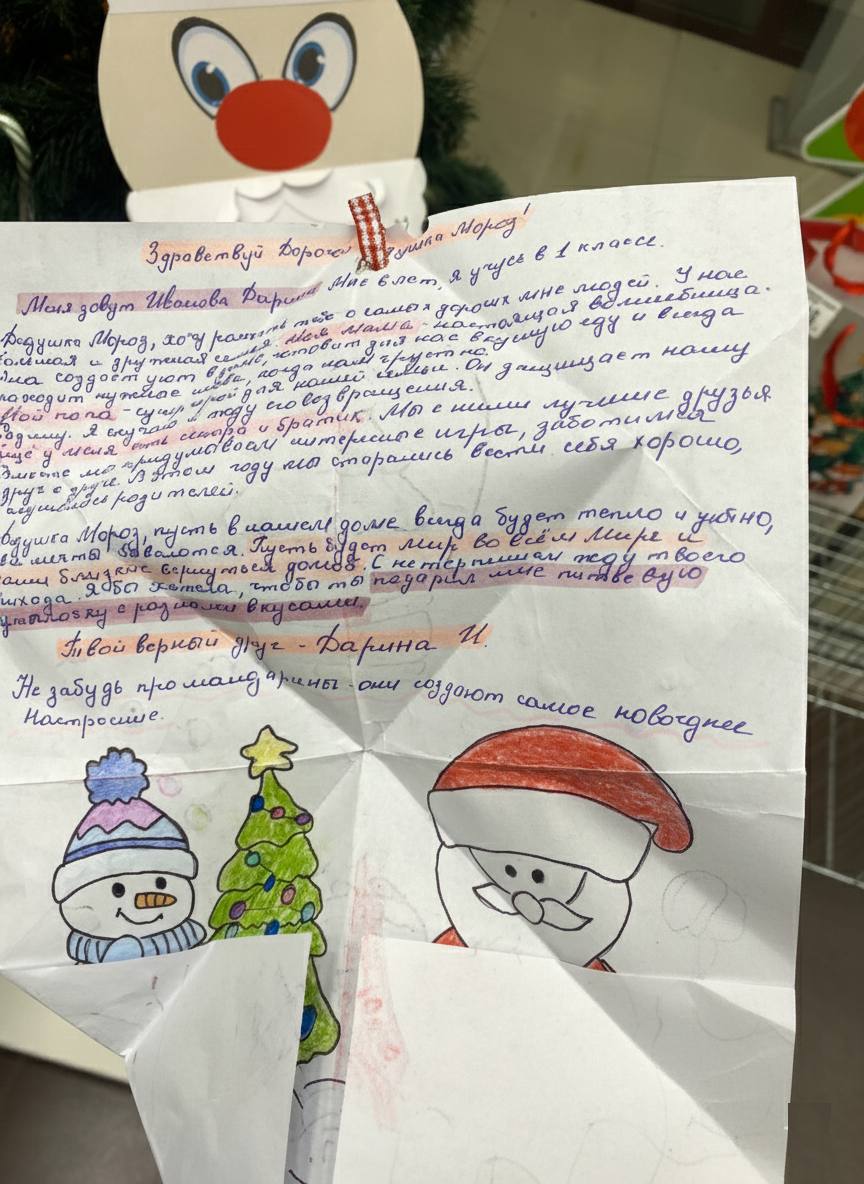 Здравствуй Дорогой Дедушка Мороз!
Меня зовут Иванова Дарина Мне 8 лет, я учусь в 1 классе.
Дедушка Мороз, хочу рассказать тебе о самых дорогих мне людей. У нас
большая и дружная семья. Моя мама - настоящая волшебница.
Она создаёт уют в доме, готовит для нас вкусную еду и всегда
находит нужные слова, когда нам грустно.
Мой папа - супергерой для нашей семьи. Он защищает нашу
Родину. Я скучаю и жду его возвращения.
Ещё у меня есть сестра и братик. Мы с ними лучшие друзья
Вместе мы придумываем интересные игры, заботимся
друг о друге. В этом году мы старались вести себя хорошо,
слушались родителей.
Дедушка Мороз, пусть в нашем доме всегда будет тепло и уютно,
мечты сбываются. Пусть будет мир во всём мире и
наши близкие вернуться домой. С нетерпением жду твоего
прихода. Я бы хотела, чтобы ты подарил мне питьевую
бутылочку с разными вкусами.
Твой верный друг - Дарина И.
Не забудь про мандарины - они создают самое новогоднее
Настроение.